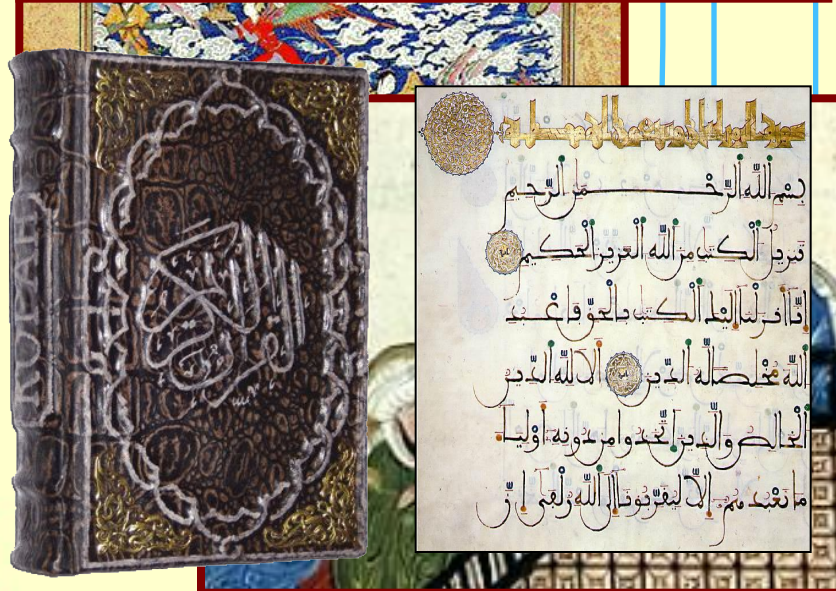 КОРАН
القرآن الكريم
بِسْمِ اللَّهِ الرَّحْمَنِ الرَّحِيمِ
تنزيل الكتب من الله العزيز الحكيم
إنّا أنزلنا إليك الكتب بالحقّ فاعبد
الله مخلصا لّه الدّين ألا للّه الدّين
الخالص والّذين اتّخذوا من دونه أوليا
ما نعبدهم إلّا ليقرّبونا إلى الله زلفى إنّ